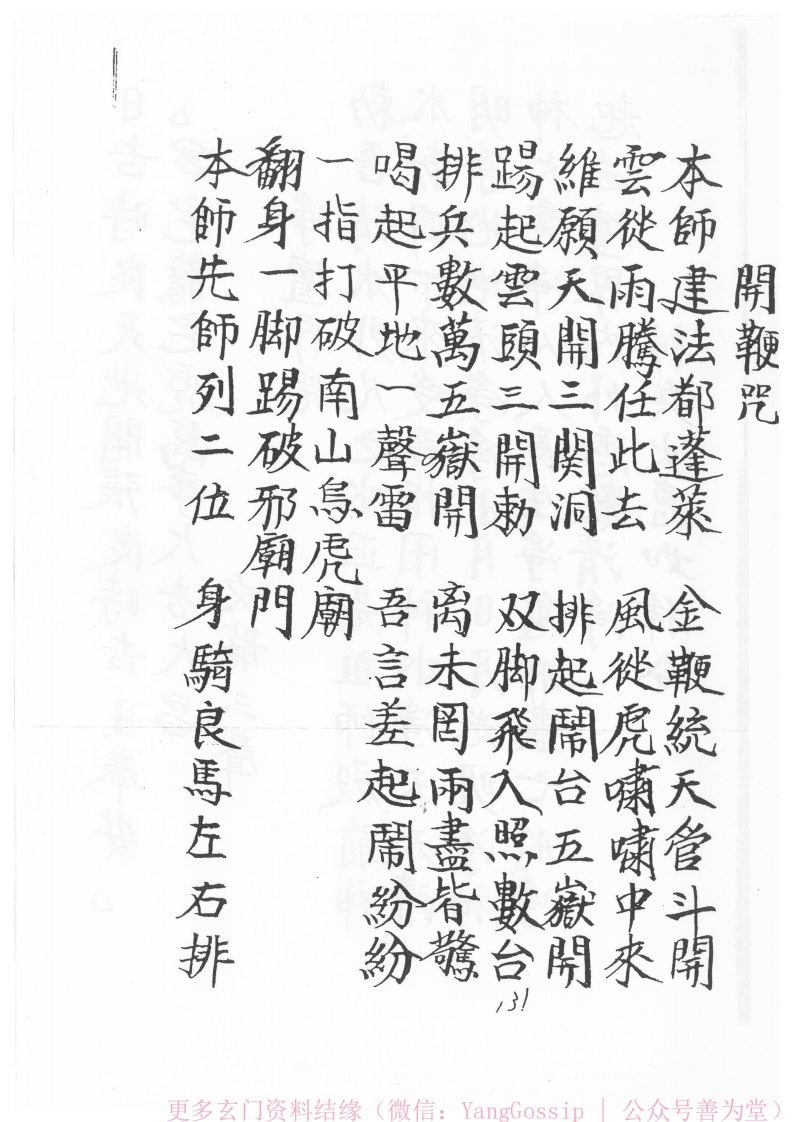 開鞭咒
本師建法都蓬萊 金鞭統天營斗開
雲從雨騰任此去 風從虎嘯嘯中來
維願天開三関洞 排起鬧台五嶽開
踢起雲頭三開勅 双脚飛入照數台
排兵數萬五嶽開 离未罔兩盡皆驚
喝起平地一聲雷 吾言差起鬧紛紛
一指打破南山烏虎廟
翻身一脚踢破邪廟門
本師先師列二位 身騎良馬左右排
131
更多玄门资料结缘（微信：YangGossip | 公众号善为堂）